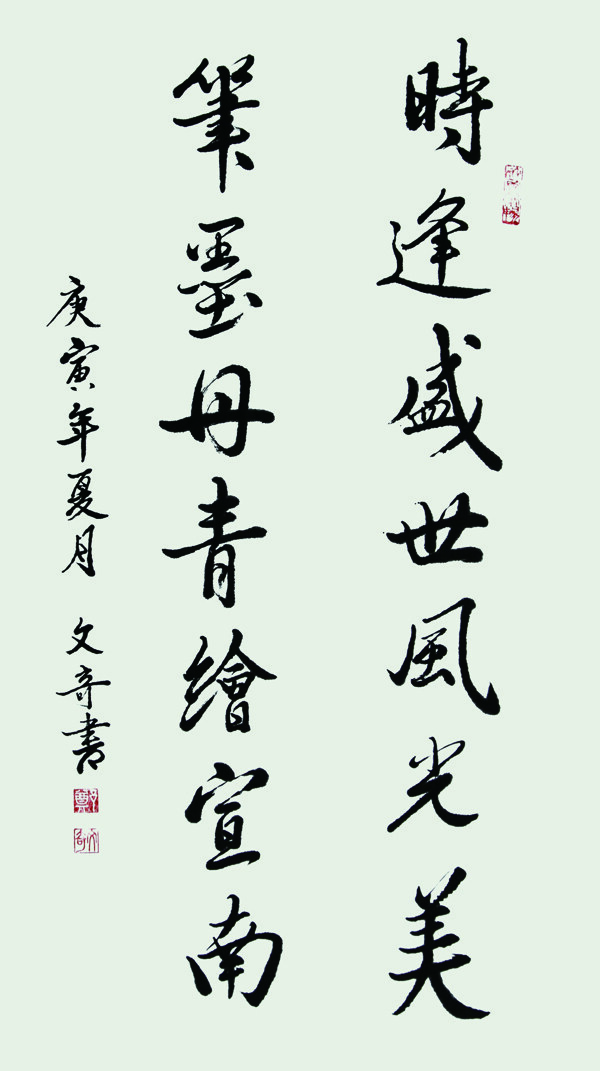 時逢盛世風光美
筆墨丹青繪宣南
庚寅年夏月 文奇書